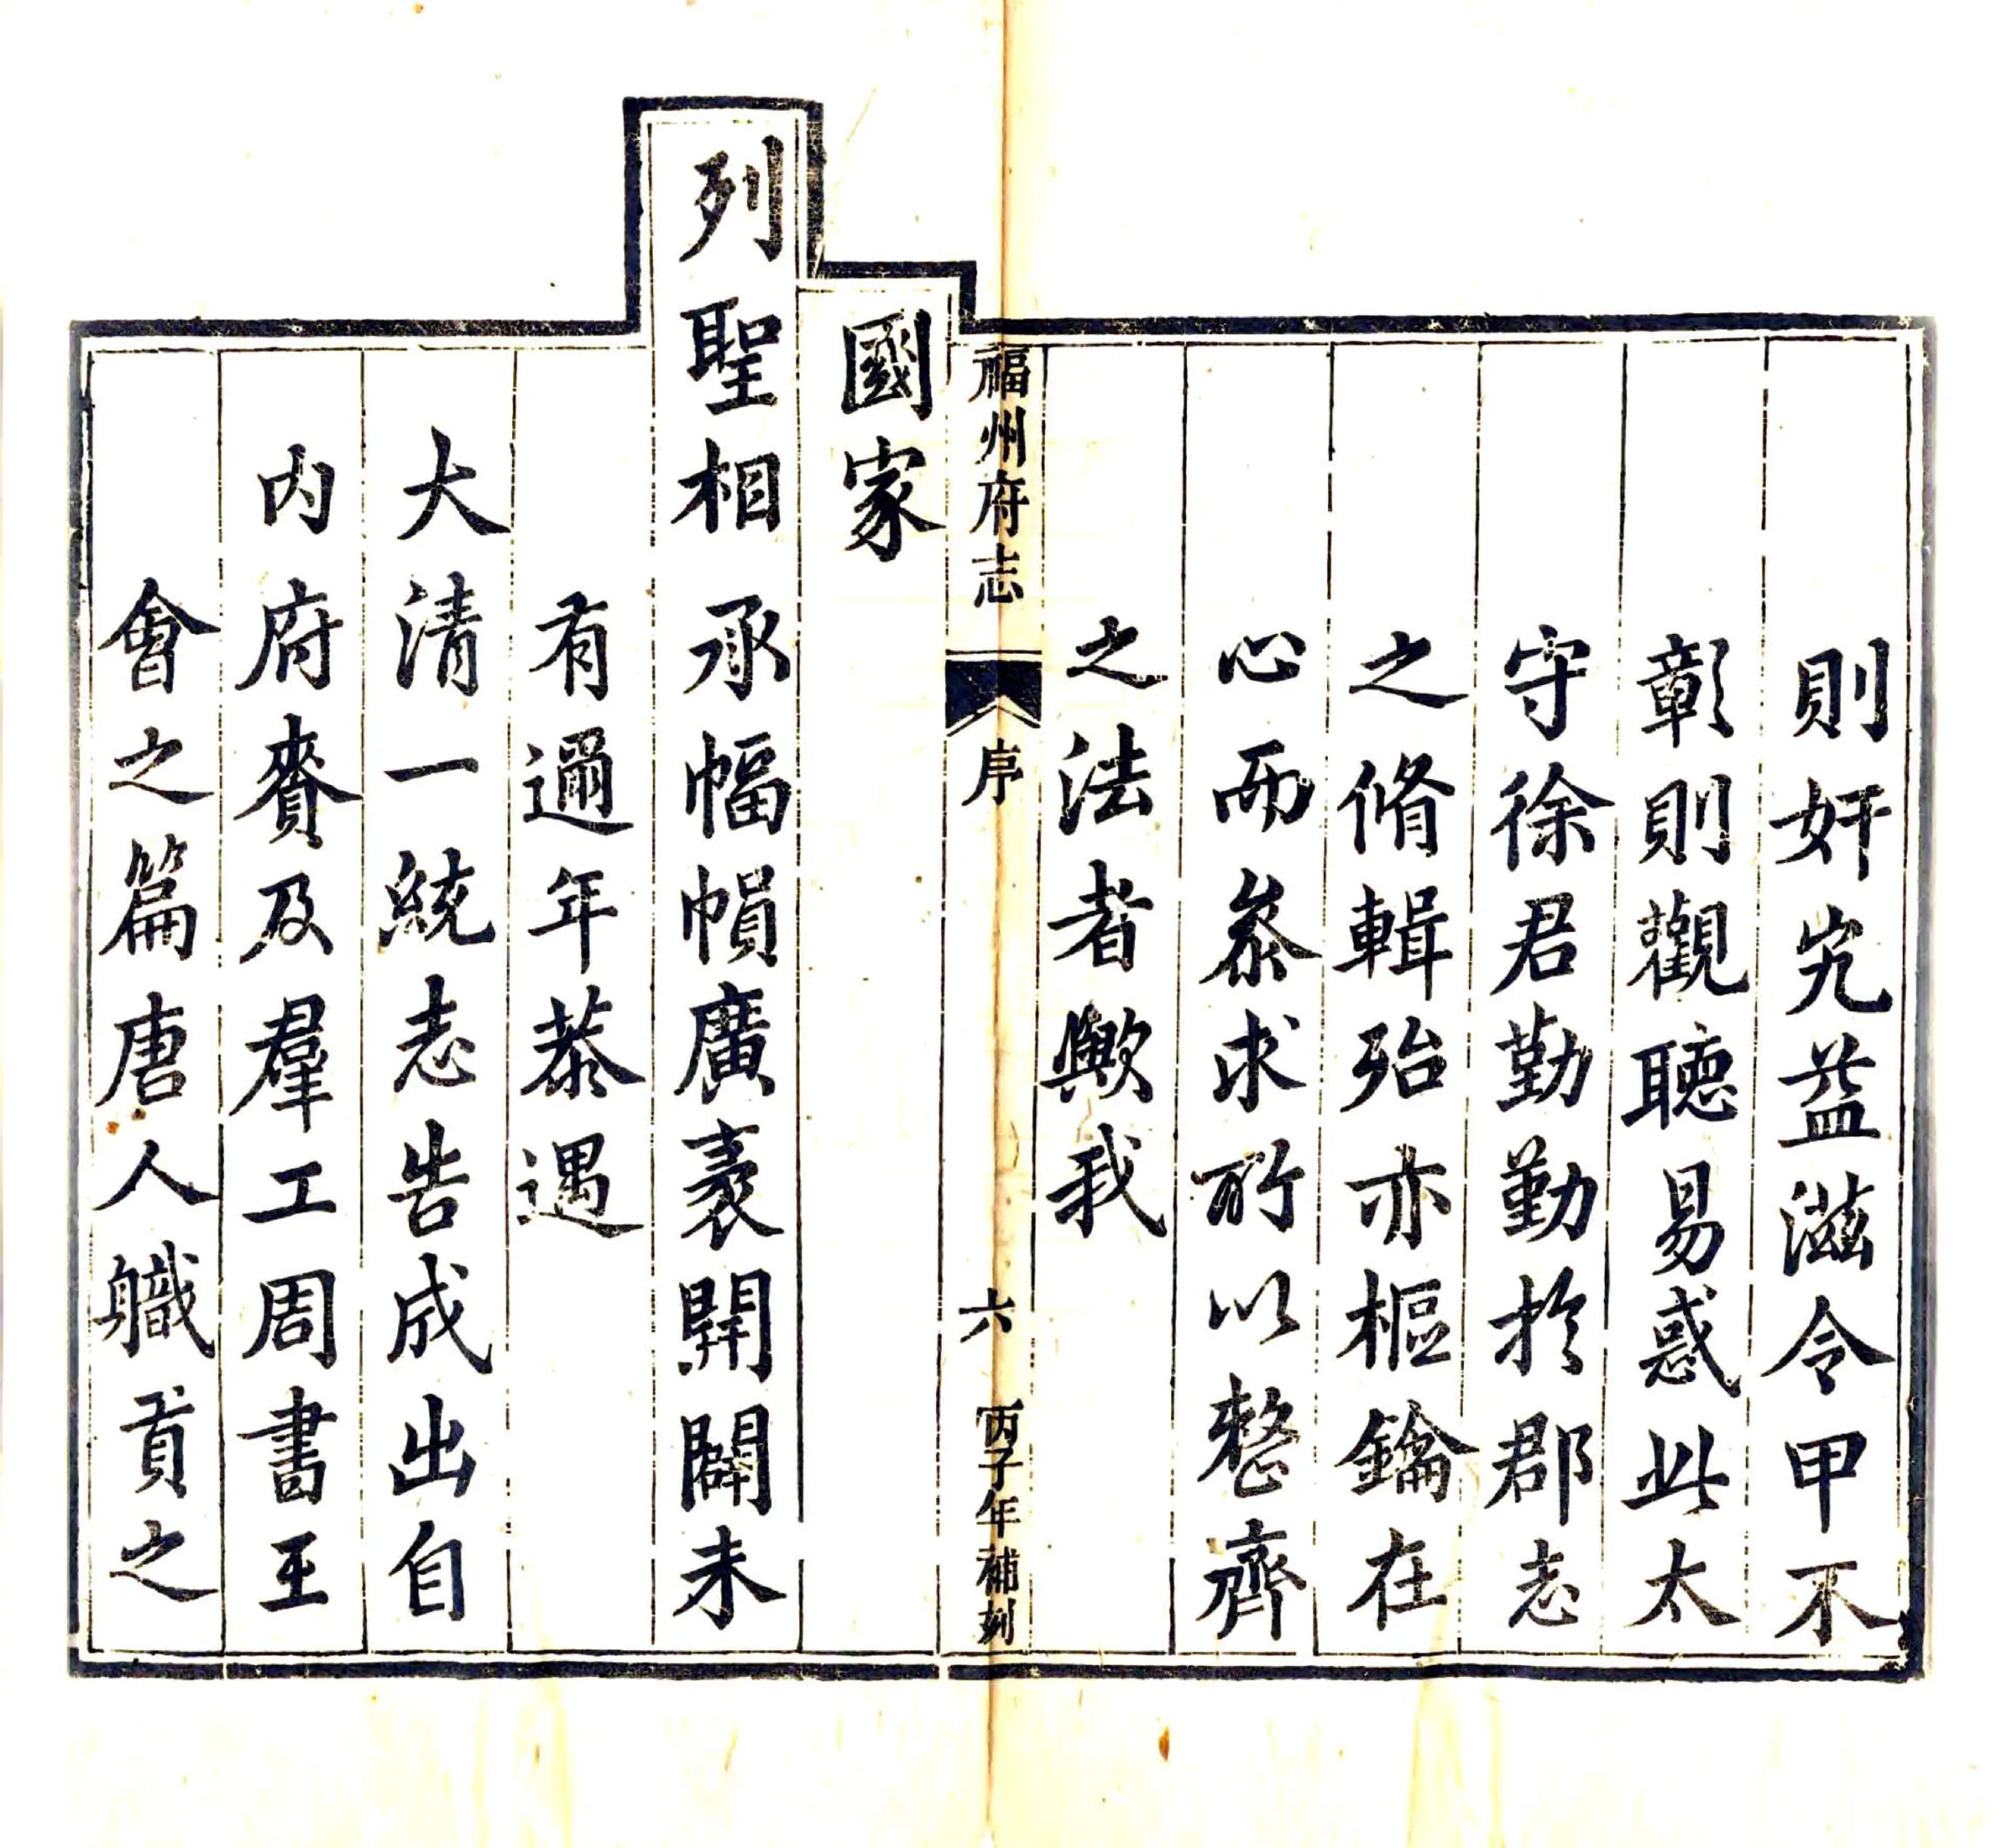 則奸宄益滋令甲不
彰則觀聽易惑此太
守徐君勤勤於郡志
之脩輯殆亦樞鑰在
心而叅求所以整齊
之法者歟我
福州府志
序
六
丙子年補刻
國家
列聖相承幅幀廣袤開闢未
有邇年恭遇
大清一統志告成出自
內府賚及羣工周書王
會之篇唐人職貢之